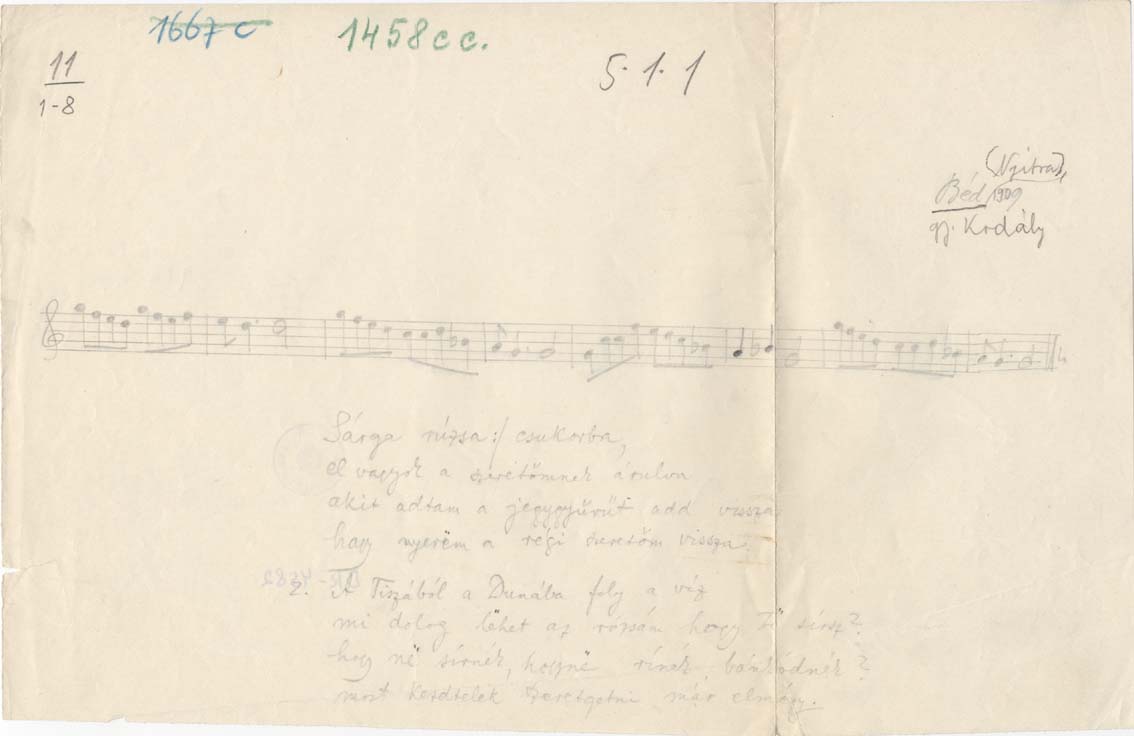 1667 c
1458 c c.
11
1-8
5. 1. 1
(Nyitra),
Béd 1909
gy. Kodály
Sárga rúzsa :/ csukorba,
el vagyok a szeretőmnek árulva
akit adtam a jegygyűrűt add vissza
hagy nyerëm a régi szeretőm vissza.
2. A Tiszából a Dunába foly a víz
mi dolog lëhet az rózsám hogy sírsz?
hogy në sírnék, hogynë rínék, bánkódnék?
most kezdtelek szeretgetni már elmégy.